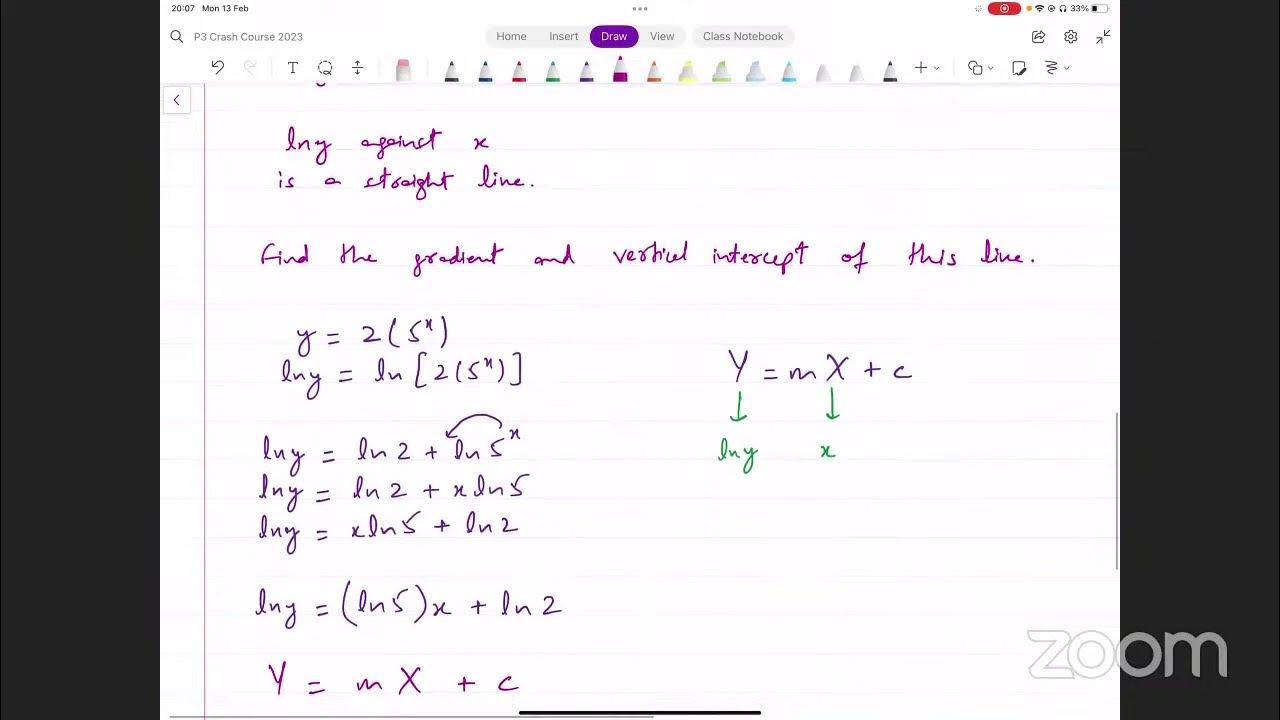 20:07 Mon 13 Feb
33%
P3 Crash Course 2023
Home Insert Draw View Class Notebook
ln y against x
is a straight line.
Find the gradient and vertical intercept of this line.
y = 2(5^x)
ln y = ln[2(5^x)]
ln y = ln 2 + ln 5^x
ln y = ln 2 + x ln 5
ln y = x ln 5 + ln 2
ln y = (ln 5)x + ln 2
Y = m X + c
Y = m X + c
ln y x
zoom